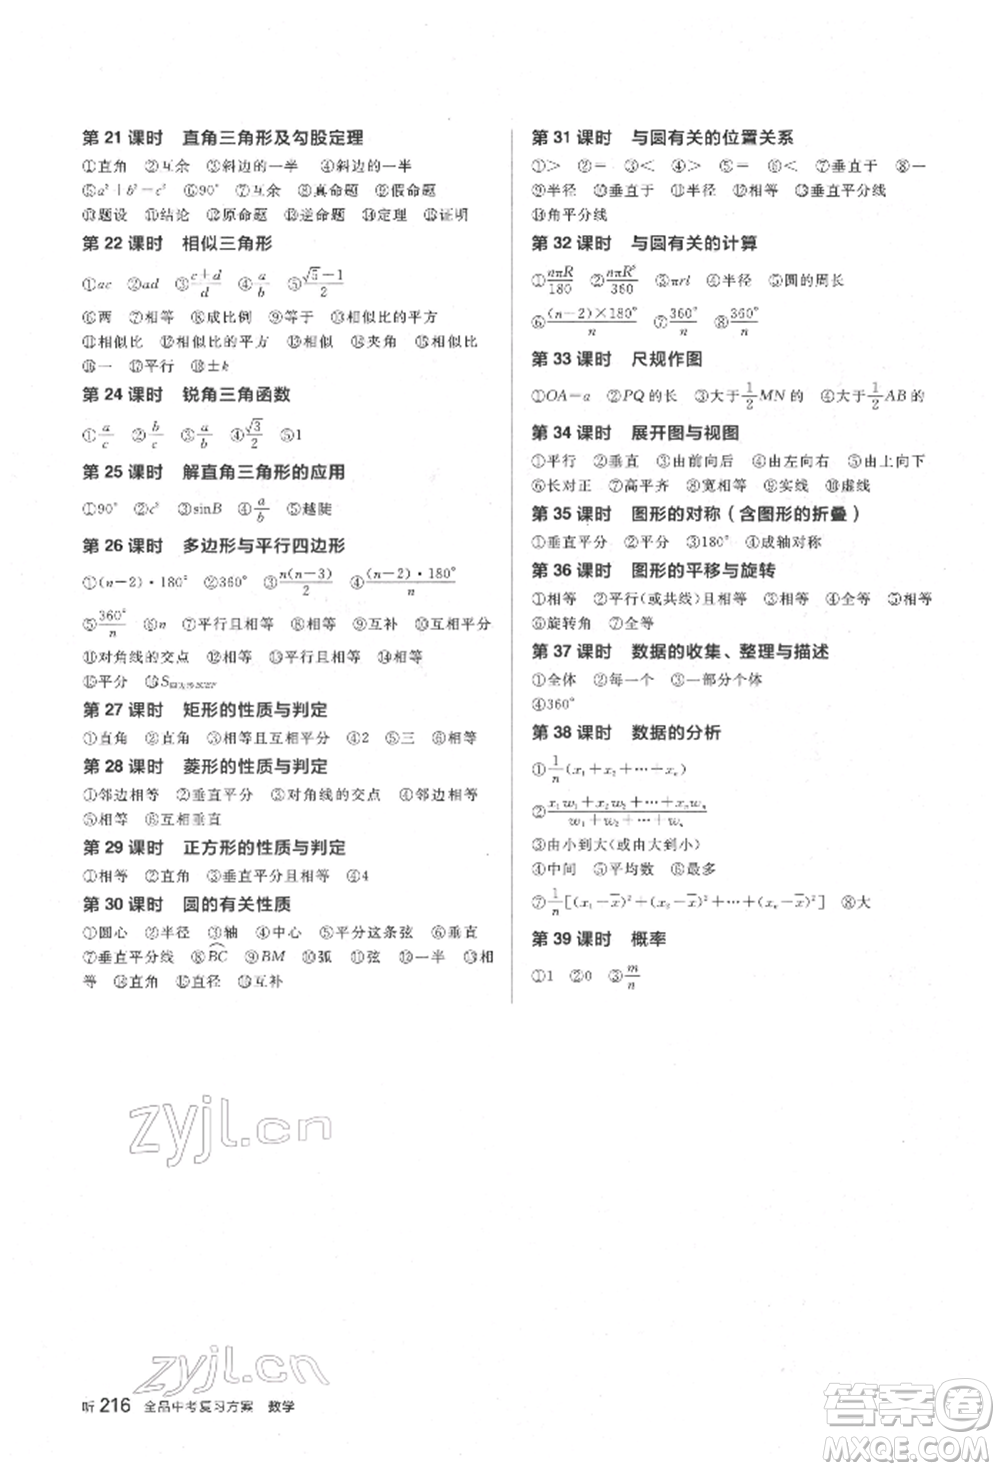 第 21 课时　直角三角形及勾股定理
①直角　②互余　③斜边的一半　④斜边的一半
⑤a²+b²=c²　⑥90°　⑦互余　⑧真命题　⑨假命题
⑩题设　⑪结论　⑫原命题　⑬逆命题　⑭定理　⑮证明
第 22 课时　相似三角形
①ac　②ad　③(c+d)/d　④a/b　⑤(√5−1)/2
⑥两　⑦相等　⑧成比例　⑨等于　⑩相似比的平方
⑪相似比　⑫相似比的平方　⑬相似比　⑭夹角　⑮相似比
⑯一　⑰平行　⑱±k
第 24 课时　锐角三角函数
①a/c　②b/c　③a/b　④√3/2　⑤1
第 25 课时　解直角三角形的应用
①90°　②c²　③sinB　④a/b　⑤越陡
第 26 课时　多边形与平行四边形
①(n−2)·180°　②360°　③n(n−3)/2　④(n−2)·180°/n
⑤360°/n　⑥n　⑦平行且相等　⑧相等　⑨互补　⑩平分
⑪对角线的交点　⑫相等　⑬相等　⑭相等
⑮平分　⑯S
第 27 课时　矩形的性质与判定
①直角　②直角　③相等且互相平分　④2　⑤三　⑥相等
第 28 课时　菱形的性质与判定
①邻边相等　②垂直平分　③对角线的交点　④相等
⑤相等　⑥互相垂直
第 29 课时　正方形的性质与判定
①相等　②直角　③垂直平分且相等　④4
第 30 课时　圆的有关性质
①圆心　②半径　③轴　④中心　⑤平分这条弦　⑥垂直
⑦垂直平分线　⑧BC　⑨BM　⑩弧　⑪弦　⑫一半　⑬相
等　⑭直角　⑮直径　⑯互补
第 31 课时　与圆有关的位置关系
①>　②=　③<　④>　⑤=　⑥<　⑦垂直于　⑧一
⑨半径　⑩垂直于　⑪半径　⑫相等　⑬垂直平分线
⑭角平分线
第 32 课时　与圆有关的计算
①nπR/180　②nπR²/360　③πrl　④半径　⑤圆的周长
⑥(n−2)×180°/n　⑦360°/n　⑧360°/n
第 33 课时　尺规作图
①OA=a　②PQ的长　③大于1/2MN的　④大于1/2AB的
第 34 课时　展开图与视图
①平行　②垂直　③由前向后　④由左向右　⑤由上向下
⑥长对正　⑦高平齐　⑧宽相等　⑨实线　⑩虚线
第 35 课时　图形的对称（含图形的折叠）
①垂直平分　②平分　③180°　④成轴对称
第 36 课时　图形的平移与旋转
①相等　②平行(或共线)且相等　③相等　④全等　⑤相等
⑥旋转角　⑦全等
第 37 课时　数据的收集、整理与描述
①全体　②每一个　③一部分个体
④360°
第 38 课时　数据的分析
①1/n(x₁+x₂+⋯+xₙ)
②(x₁w₁+x₂w₂+⋯+xₙwₙ)/(w₁+w₂+⋯+wₙ)
③由小到大(或由大到小)
④中间　⑤平均数　⑥最多
⑦1/n[(x₁−x̄)²+(x₂−x̄)²+⋯+(xₙ−x̄)²]　⑧大
第 39 课时　概率
①1　②0　③m/n
zyjl.cn
zyjl.cn
听 216　全品中考复习方案　数学
答案圈
MXQE.COM